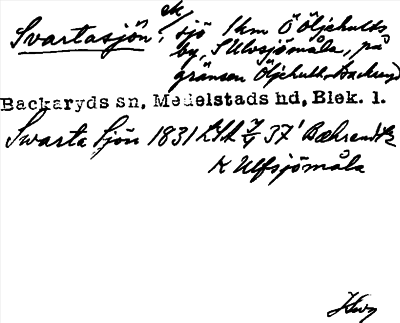 Svartasjön, ek/sjö 1 km Ö Öljehults
by, S Ulvsjömåla, på
gränsen Öljehult-Backaryd
Backaryds sn, Medelstads hd, Blek. l.
Swarta Sjön 1831 37' Bæhrendtz
K Ulfsjömåla